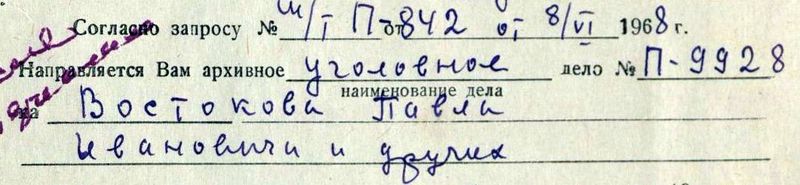 Согласно запросу № ш/I П-842 от от 8/VI 1968 г.
Направляется Вам архивное уголовное дело № П-9928
наименование дела
на Востокова Павла
Ивановича и других